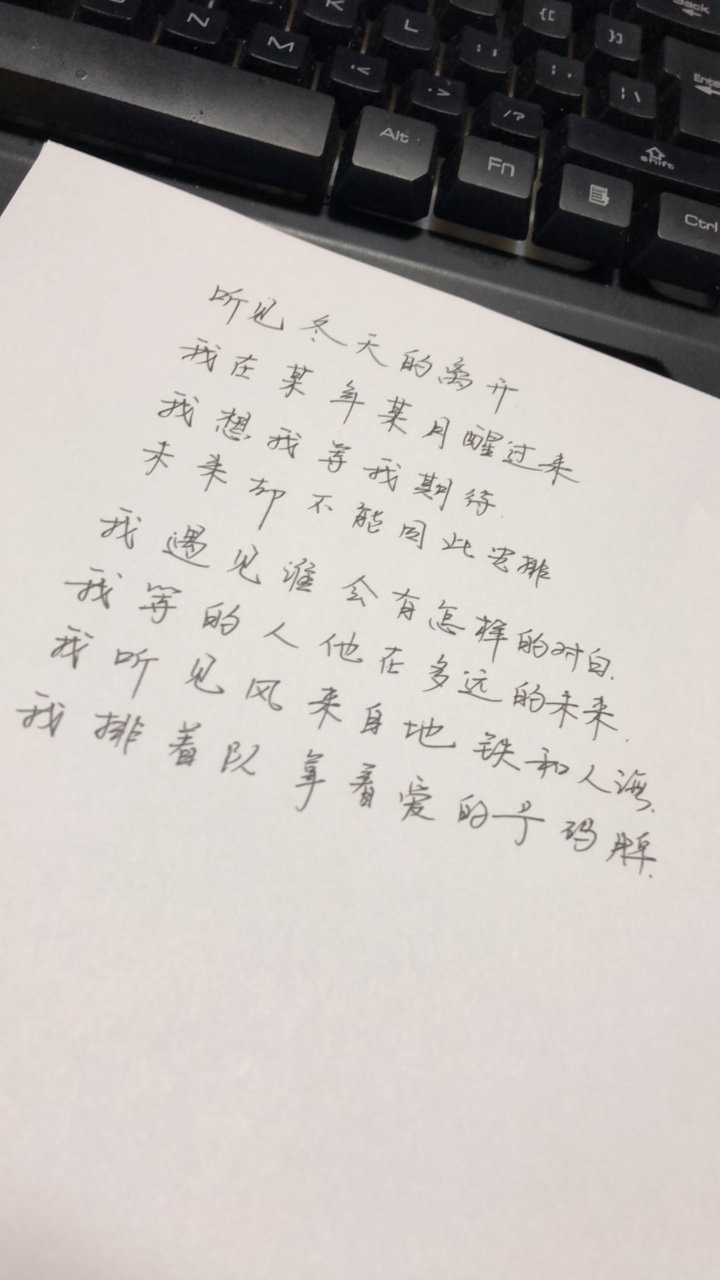 N
M
K
L
{[
}]
: ;
" '
< ,
> .
? /
| \
Back
Enter
Alt
Fn
Shift
Ctrl
听见冬天的离开
我在某年某月醒过来
我想我等我期待.
未来却不能因此安排
我遇见谁会有怎样的对白.
我等的人他在多远的未来.
我听见风来自地铁和人海.
我排着队拿着爱的号码牌.